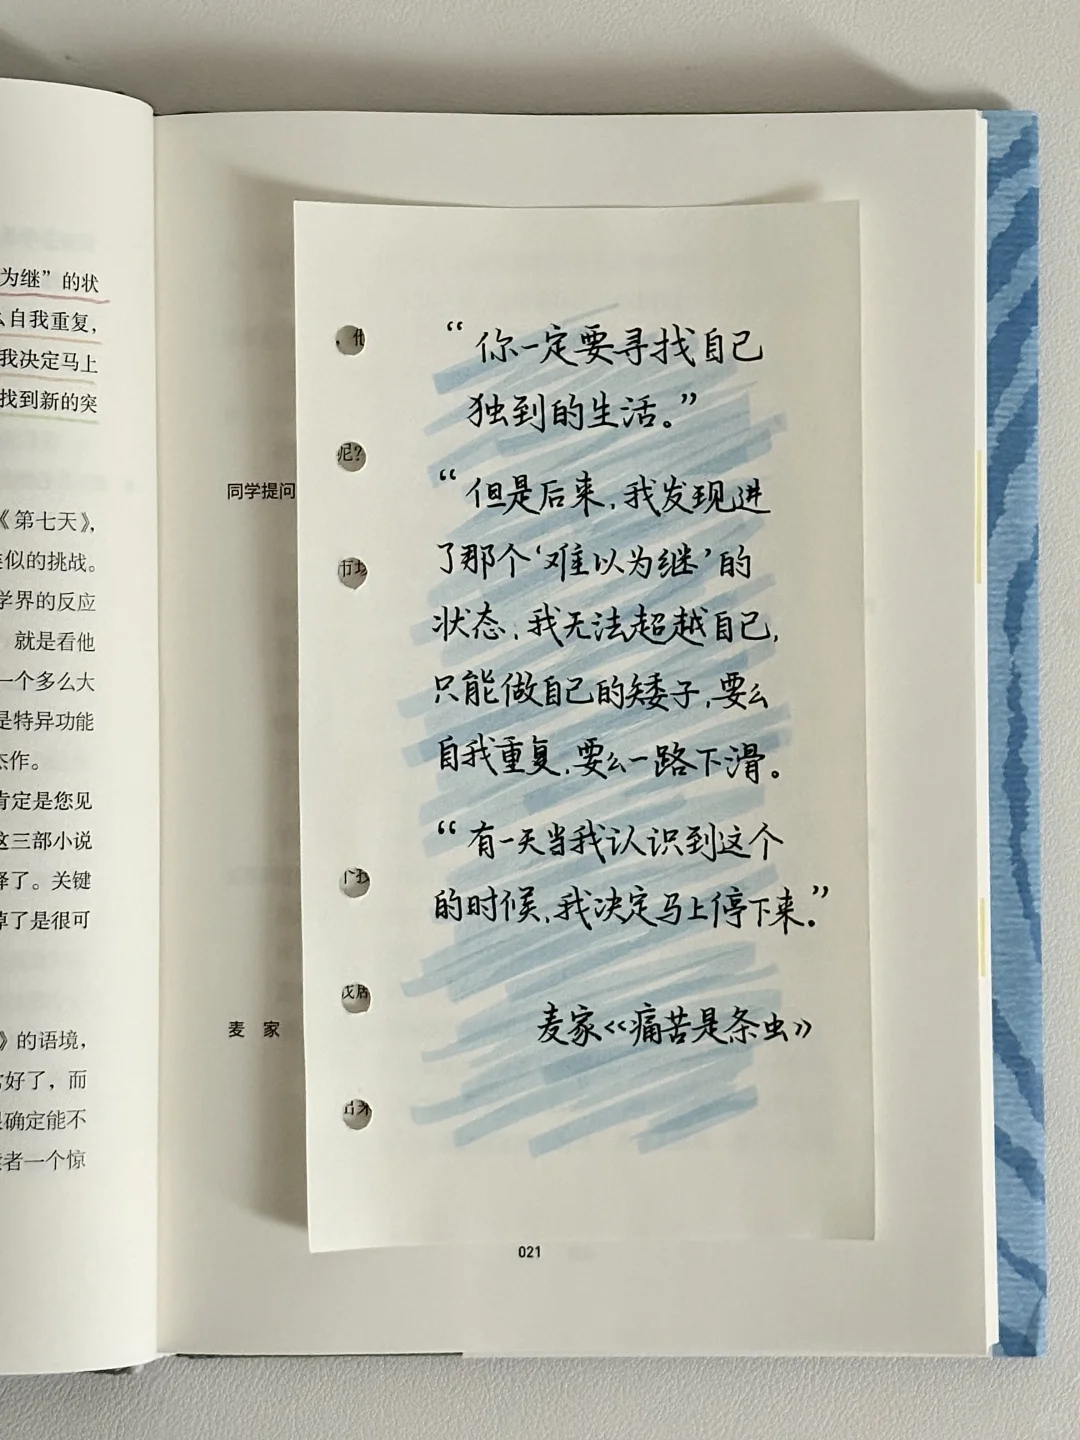 为继”的状
自我重复，
我决定马上
找到新的突
《第七天》，
似的挑战。
学界的反应
就是看他
一个多么大
是特异功能
杰作。
肯定是您见
这三部小说
择了。关键
掉了是很可
》的语境，
好了，而
确定能不
者一个惊
同学提问
麦 家
，他
呢？
市场
个我
“你一定要寻找自己
独到的生活。”
“但是后来，我发现进
了那个‘难以为继’的
状态，我无法超越自己，
只能做自己的矮子，要么
自我重复，要么一路下滑。
“有一天当我认识到这个
的时候，我决定马上停下来。”
麦家《痛苦是条虫》
021